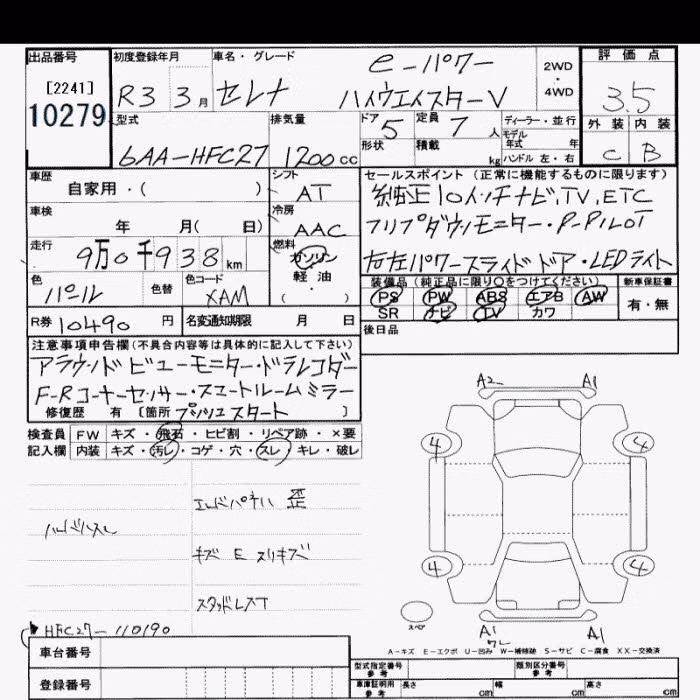 出品番号 初度登録年月 車名・グレード e-パワー 2WD・4WD 評価点
[2241] 10279 R3 3月 セレナ ハイウェイスターV 3.5
型式 排気量 ドア 5 定員 7人 ディーラー・並行 外装 内装
6AA-HFC27 1200cc 形状 積載 kg モデル年式 年 ハンドル 左・右 C B
車歴 シフト セールスポイント(正常に機能するものに限ります)
自家用・( ) AT 純正10インチナビ,TV,ETC
車検 冷房 フリップダウンモニター・P-PILOT
年 月( 日) AAC
走行 9万0千938km 燃料 ガソリン 軽油 ( ) 右左パワースライドドア・LEDライト
色 パール 色替 色コード XAM 装備品(純正品に限り〇をつけてください) 新車保証書
PS PW ABS エアB AW 有・無
SR ナビ TV カワ
R券 10490円 名変通知期限 月 日 後日品
注意事項申告欄(不具合内容等は具体的に記入して下さい)
アラウンドビューモニター・ドラレコダー
F-Rコーナーセンサー・スマートルームミラー
修復歴 有 [箇所 プッシュスタート ]
検査員 FW キズ・飛石・ヒビ割・リペア跡・×要
記入欄 内装 キズ・汚レ・コゲ・穴・スレ・キレ・破レ
A2 A1
4 4
エンドパネル 歪
キズ E スリキズ
4 4
スタッドレスT
スペア
HFC27-110190 A1 A1
A-キズ E-エクボ U-凹み W-補修跡 S-サビ C-腐食 XX-交換済
車台番号 型式指定番号 参考 類別区分番号 参考
登録番号 車庫証明用 参考 長さ cm 幅 cm 高さ cm